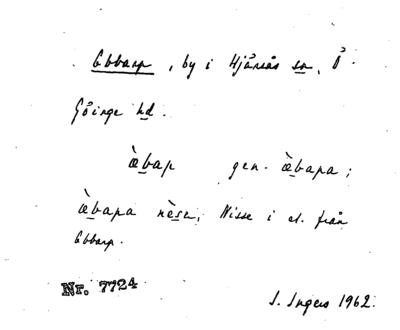 Ebbarp, by i Hjärsås sn, Ö.
Göinge hd.
æ̀bap gen. æ̀bapa;
æ̀bapa nèse, Nisse i el. från
Ebbarp.
Nr. 7724
I. Ingers 1962.